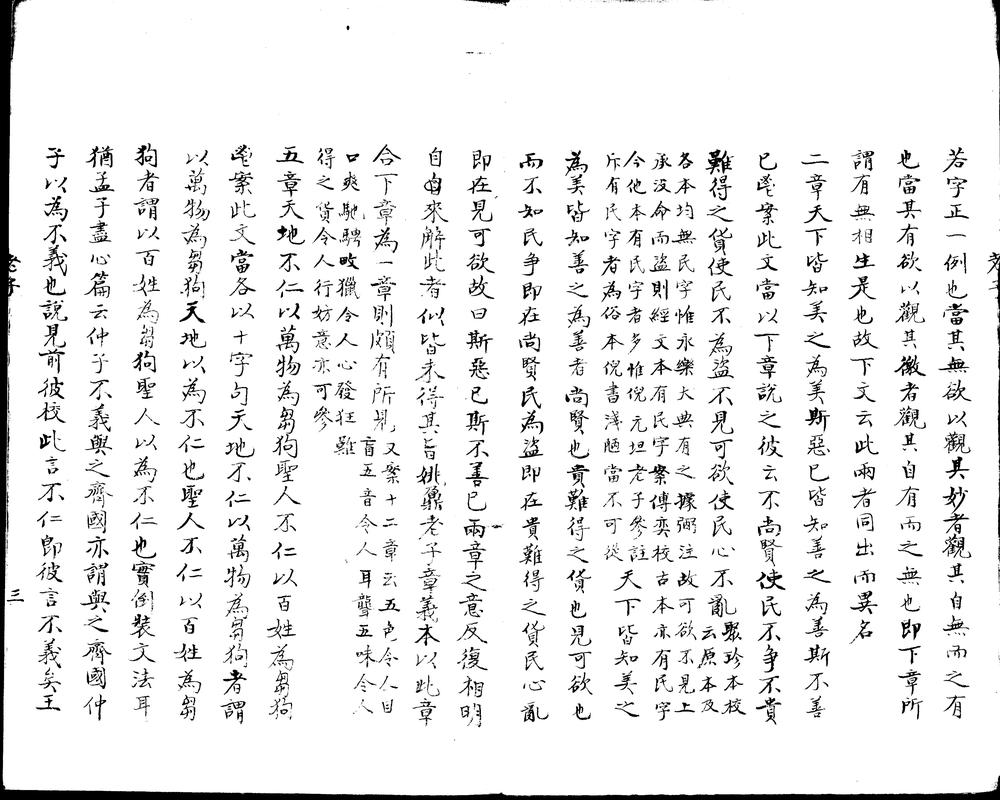 若字正一例也當其無欲以觀其妙者觀其自無而之有
也當其有欲以觀其徼者觀其自有而之無也即下章所
謂有無相生是也故下文云此兩者同出而異名
二章天下皆知美之為美斯惡已皆知善之為善斯不善
已鬯案此文當以下章說之彼云不尚賢使民不争不貴
難得之貨使民不為盜不見可欲使民心不亂
聚珍本校
云原本及
各本均無民字惟永樂大典有之據弼注故可欲不見上
承没命而盜則經文本有民字案傅奕校古本亦有民字
今他本有民字者多惟倪元坦老子參註
斥有民字者為俗本倪書淺陋當不可從
天下皆知美之
為美皆知善之為善者尚賢也貴難得之貨也見可欲也
而不知民争即在尚賢民為盜即在貴難得之貨民心亂
即在見可欲故曰斯惡已斯不善已兩章之意反復相明
自來解此者似皆未得其旨姚鼐老子章義本以此章
合下章為一章則頗有所見
又案十二章云五色令人目
盲五音令人耳聾五味令人
口爽馳騁畋獵令人心發狂難
得之貨令人行妨意亦可參
五章天地不仁以萬物為芻狗聖人不仁以百姓為芻狗
鬯案此文當各以十字句天地不仁以萬物為芻狗者謂
以萬物為芻狗天地以為不仁也聖人不仁以百姓為芻
狗者謂以百姓為芻狗聖人以為不仁也實倒裝文法耳
猶孟子盡心篇云仲子不義與之齊國亦謂與之齊國仲
子以為不義也說見前彼校此言不仁即彼言不義矣王
老子
三
老子